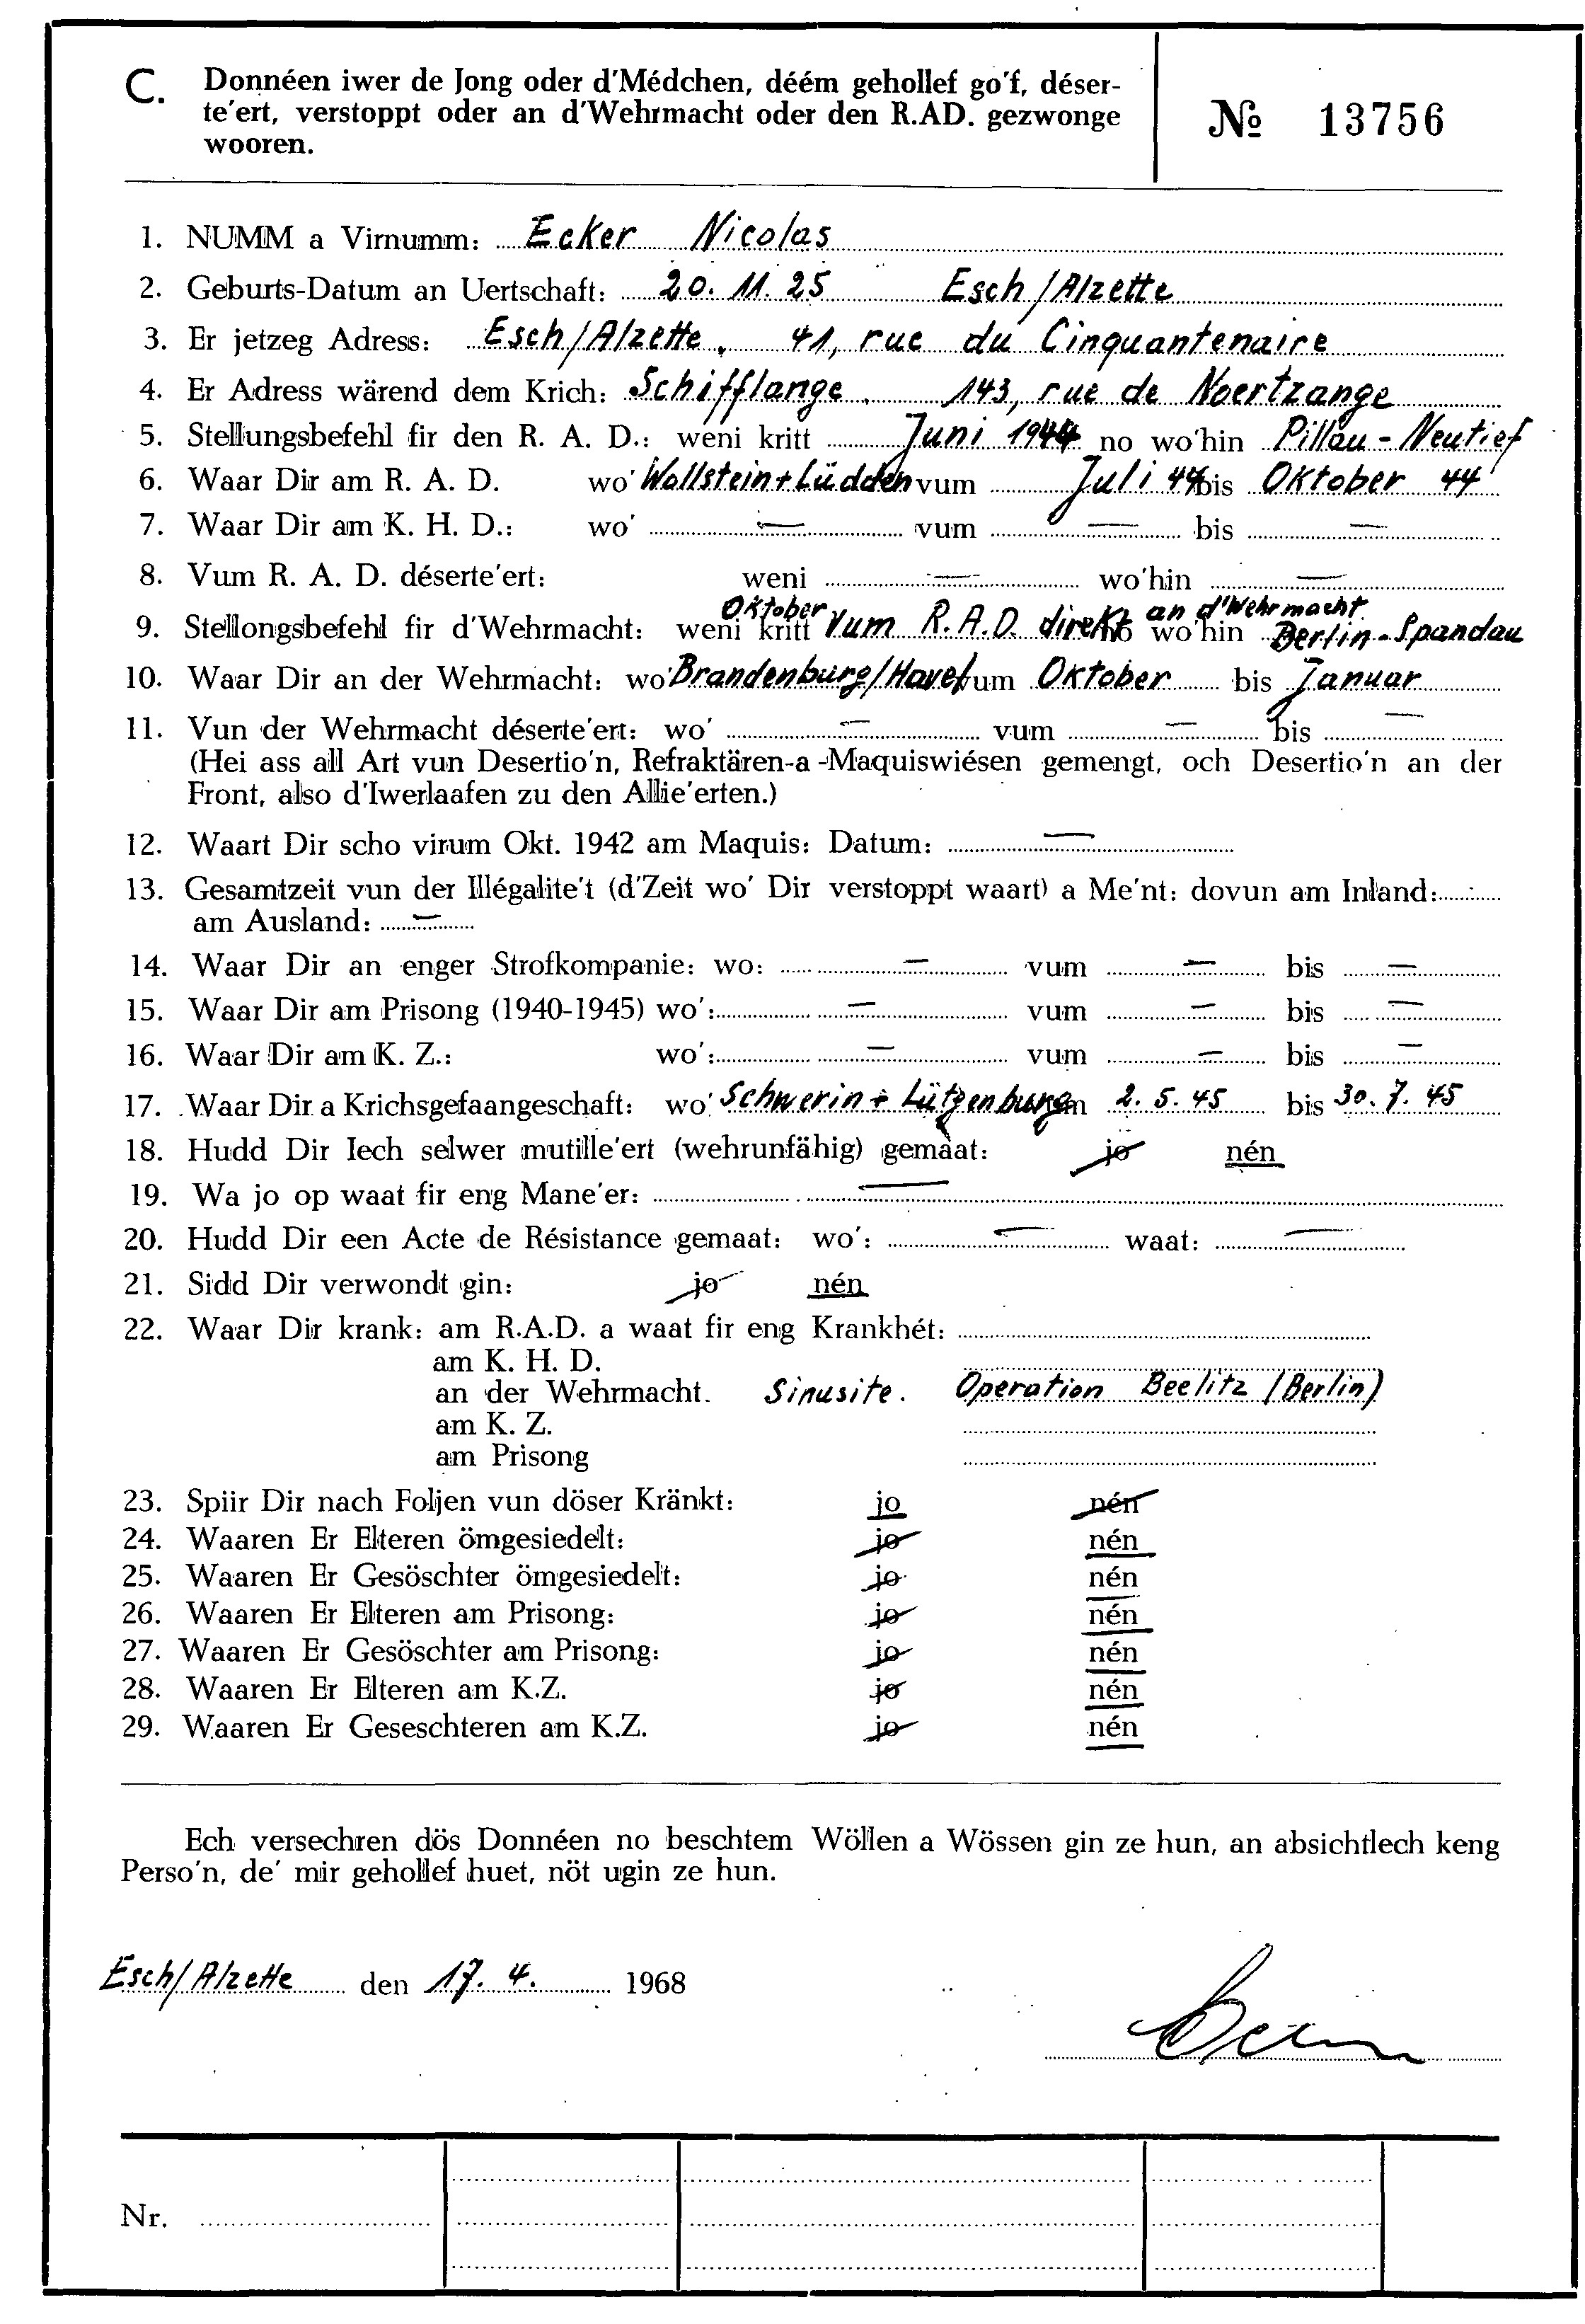 C. Donnéen iwer de Jong oder d'Médchen, déém gehollef go'f, déser-
te'ert, verstoppt oder an d'Wehrmacht oder den R.AD. gezwonge
wooren.
№ 13756
1. NUMM a Virnumm: Ecker Nicolas
2. Geburts-Datum an Uertschaft: 20. 11. 25 Esch/Alzette
3. Er jetzeg Adress: Esch/Alzette, 41, rue du Cinquantenaire
4. Er Adress wärend dem Krich: Schifflange, 143, rue de Noertzange
5. Stellungsbefehl fir den R. A. D.: weni kritt Juni 1944 no wo'hin Pillau-Neutief
6. Waar Dir am R. A. D. wo' Wollstein + Lüdden vum Juli 44 bis Oktober 44
7. Waar Dir am K. H. D.: wo' — vum — bis —
8. Vum R. A. D. déserte'ert: weni — wo'hin —
9. Stellongsbefehl fir d'Wehrmacht: weni kritt Oktober Vum R.A.D. direkt an d'Wehrmacht no wo'hin Berlin-Spandau
10. Waar Dir an der Wehrmacht: wo' Brandenburg/Havel vum Oktober bis Januar
11. Vun der Wehrmacht déserte'ert: wo' — vum — bis —
(Hei ass all Art vun Desertio'n, Refraktären-a-Maquiswiésen gemengt, och Desertio'n an der
Front, also d'Iwerlaafen zu den Allie'erten.)
12. Waart Dir scho virum Okt. 1942 am Maquis: Datum: —
13. Gesamtzeit vun der Illégalite't (d'Zeit wo' Dir verstoppt waart) a Me'nt: dovun am Inland: -
am Ausland: —
14. Waar Dir an enger Strofkompanie: wo: — vum — bis —
15. Waar Dir am Prisong (1940-1945) wo': — vum — bis —
16. Waar Dir am K. Z.: wo': — vum — bis —
17. Waar Dir a Krichsgefaangeschaft: wo' Schwerin + Lützenburg 2. 5. 45 bis 30. 7. 45
18. Hudd Dir Iech selwer mutille'ert (wehrunfähig) gemaat: jo nén
19. Wa jo op waat fir eng Mane'er: —
20. Hudd Dir een Acte de Résistance gemaat: wo': — waat: —
21. Sidd Dir verwondt gin: jo nén
22. Waar Dir krank: am R.A.D. a waat fir eng Krankhét:
am K. H. D.
an der Wehrmacht. Sinusite. Operation Beelitz (Berlin)
am K. Z.
am Prisong
23. Spiir Dir nach Foljen vun döser Kränkt: jo nén
24. Waaren Er Elteren ömgesiedelt: jo nén
25. Waaren Er Gesöschter ömgesiedelt: jo nén
26. Waaren Er Elteren am Prisong: jo nén
27. Waaren Er Gesöschter am Prisong: jo nén
28. Waaren Er Elteren am K.Z. jo nén
29. Waaren Er Geseschteren am K.Z. jo nén
Ech versechren dös Donnéen no beschtem Wöllen a Wössen gin ze hun, an absichtlech keng
Perso'n, de' mir gehollef huet, nöt ugin ze hun.
Esch/Alzette den 17. 4. 1968
Nr.